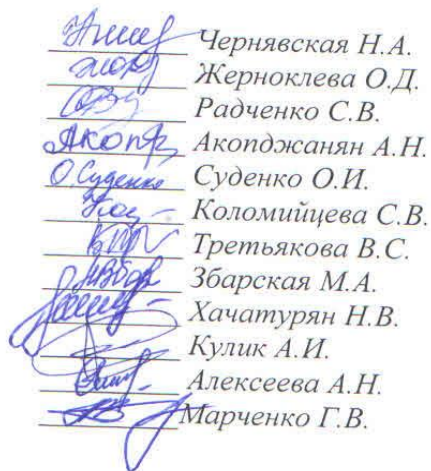 Чернявская Н.А.
Жерноклева О.Д.
Радченко С.В.
Акопджанян А.Н.
О.Суденко Суденко О.И.
Коломийцева С.В.
Третьякова В.С.
Збарская М.А.
Хачатурян Н.В.
Кулик А.И.
Алексеева А.Н.
Марченко Г.В.